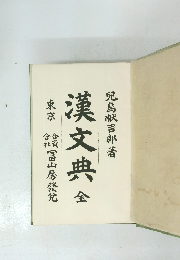 兒島献吉郎著
漢文典 全
東京 合資会社 冨山房發兌